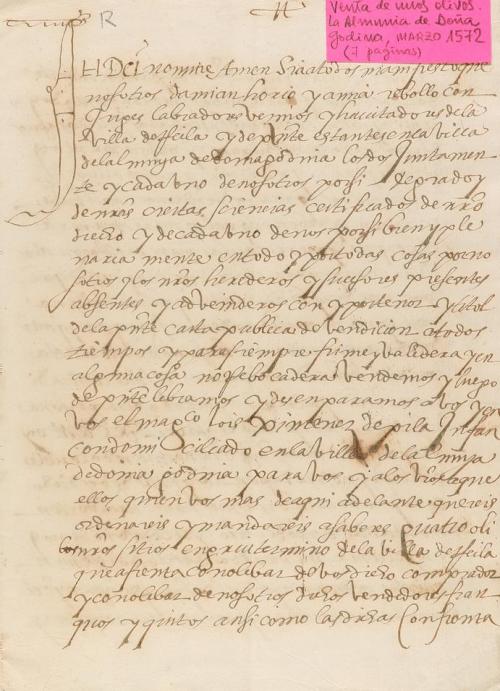 Venta de unos olivos.
la Almunia de Doña
Godina, MARZO 1572
(7 paginas)
R
IN Dei nomine Amen Sia a todos manifiesto que
nosotros damian horio y anna rebollo con
juges labradores vezinos y havitadores de la
villa de y de pnte estantes en la villa
de la almunya de donya godina los dos Juntamen
te y cada uno de nosotros por si de grado y
de nras ciertas sciencias certificados de nro
drecho y de cada uno de nos por si bien y ple
nariamente en todo y por todas cosas por no
sotros y los nros herederos y sucesores presentes
absentes y advenideros con y por tenor y titol
de la pnte carta publica de vendicion a todos
tiempos y para siempre firme y validera y en
alguna cosa no rebocadera vendemos y luego
de pnte libramos y desenparamos a vos
vos el magco lois ximenez de pila Infan
con domiciliado en la villa de la almunya
de donia godina para vos y a los vros y a
ellos quien vos mas de aqui adelante querreis
ordenareis y mandareis a saber es quatro oli
bos nros sitios en termino de la villa de
que afrenta con olibar de vos dicho comprador
y con olibar de nosotros dichos vendedores fran
quos y quitos ansi como las dichas Confronta